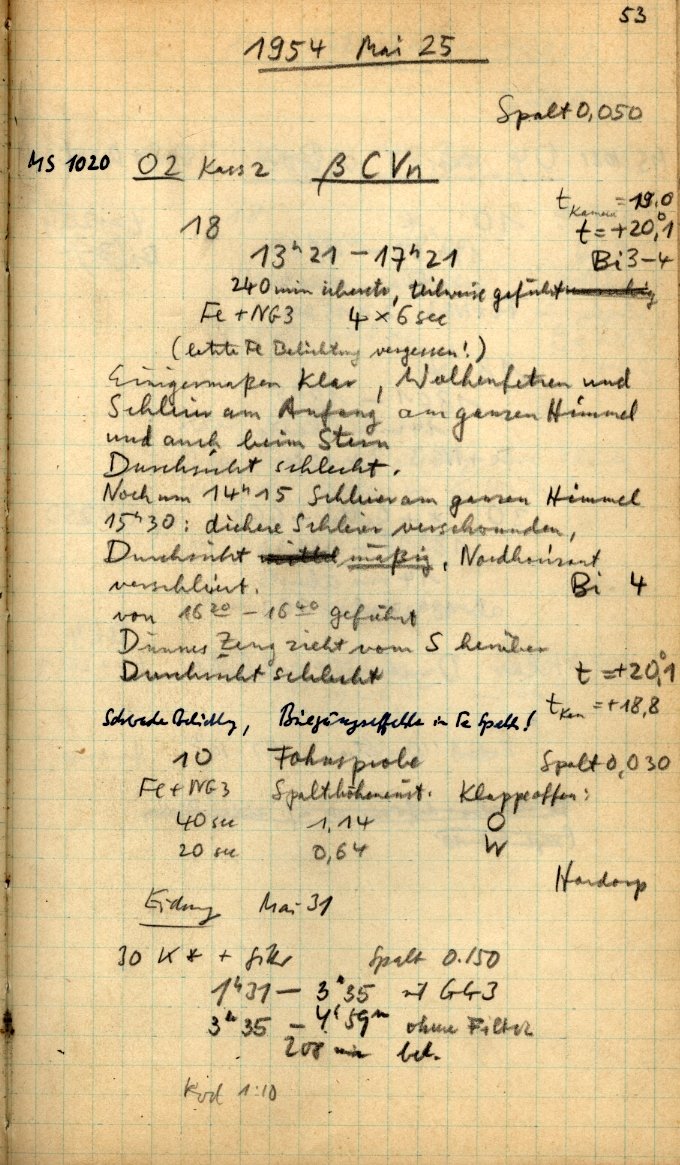 53
1954 Mai 25
Spalt 0,050
MS 1020 O2 Kass 2 β C Vn
t Kamera = 19,0
18 t = +20°,1
13ʰ21 – 17ʰ21 Bi 3–4
240 min, teilweise geführt
Fe + NG3 4 × 6 sec
(letzte Fe Belichtung vergessen!)
Einigermaßen klar, Wolkenfetzen und
Schleier am Anfang am ganzen Himmel
und auch beim Stern
Durchsicht schlecht.
Noch um 14ʰ15 Schleier am ganzen Himmel
15ʰ30: dickere Schleier verschwunden,
Durchsicht mittel mäßig, Nordhorizont
verschleiert. Bi 4
von 16²⁰ – 16⁴⁰ geführt
Dünnes Zeug zieht vom S herüber
Durchsicht schlecht t = +20°,1
t Kam = +18,8
Schwache Belichtg, in Fe Spektr!
10 Fokusprobe Spalt 0,030
Fe + NG3 Spalthöheneinst. Klappe offen:
40 sec 1,14 O
20 sec 0,64 W
Hardorp
Eichung Mai 31
30 K * + Filter Spalt 0.150
1ʰ31 – 3ʰ35 mit GG3
3ʰ35 – 4ʰ59ᵐ ohne Filter
208 min bel.
Rod 1:10